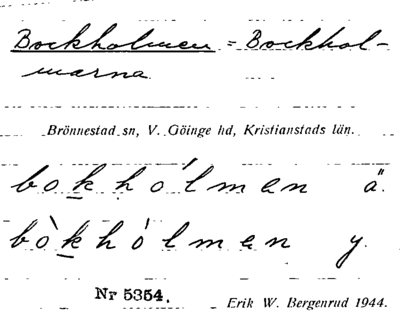 Bockholmen = Bockhol-
marna.
Brönnestad sn, V. Göinge hd, Kristianstads län.
bok̲hólmen ä.
bòk̲hólmen y.
Nr 5354.
Erik W. Bergenrud 1944.